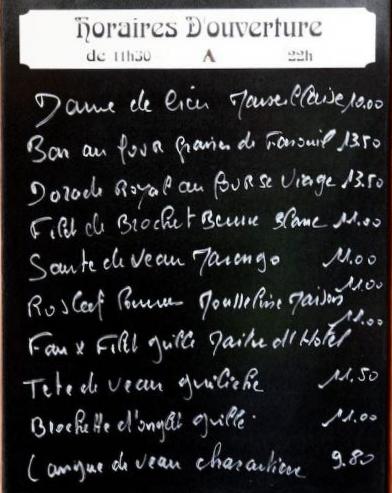 Horaires D'ouverture
de 11h30 A 22h
Darne de lieu Marseillaise 10.00
Bar au four graines de Fenouil 13.50
Dorade Royal au four se Vierge 13.50
Filet de Brochet Beurre Blanc 11.00
Saute de veau Marengo 11.00
Rosbeef Pommes Mousseline Maison 11.00
Faux Filet grillé Maitre d'Hotel 11.00
Tete de veau gribiche 11.50
Brochette d'onglet grillé 11.00
Langue de veau charcutiere 9.80